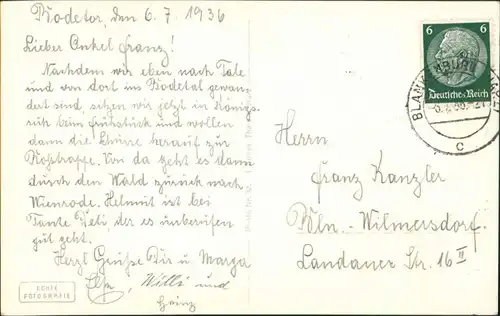 Bodetor, den 6. 7. 1936
Lieber Onkel Franz!
Nachdem wir eben nach Tale
und von dort ins Bodetal gewan-
dert sind, sitzen wir jetzt in Königs-
ruh beim Frühstück und wollen
dann die Schurre herauf zur
Roßtrappe. Von da geht es dann
durch den Wald zurück nach
Wienrode. Helmut ist bei
Tante, der es unberufen
gut geht.
Herzl Grüße Dir u Marga
Willi und
Heinz
ECHTE
FOTOGRAFIE
6 6
Deutsches Reich
BLANKENBURG
c
Herrn
Franz Kanzler
Bln.-Wilmersdorf.
Landauer Str. 16 II